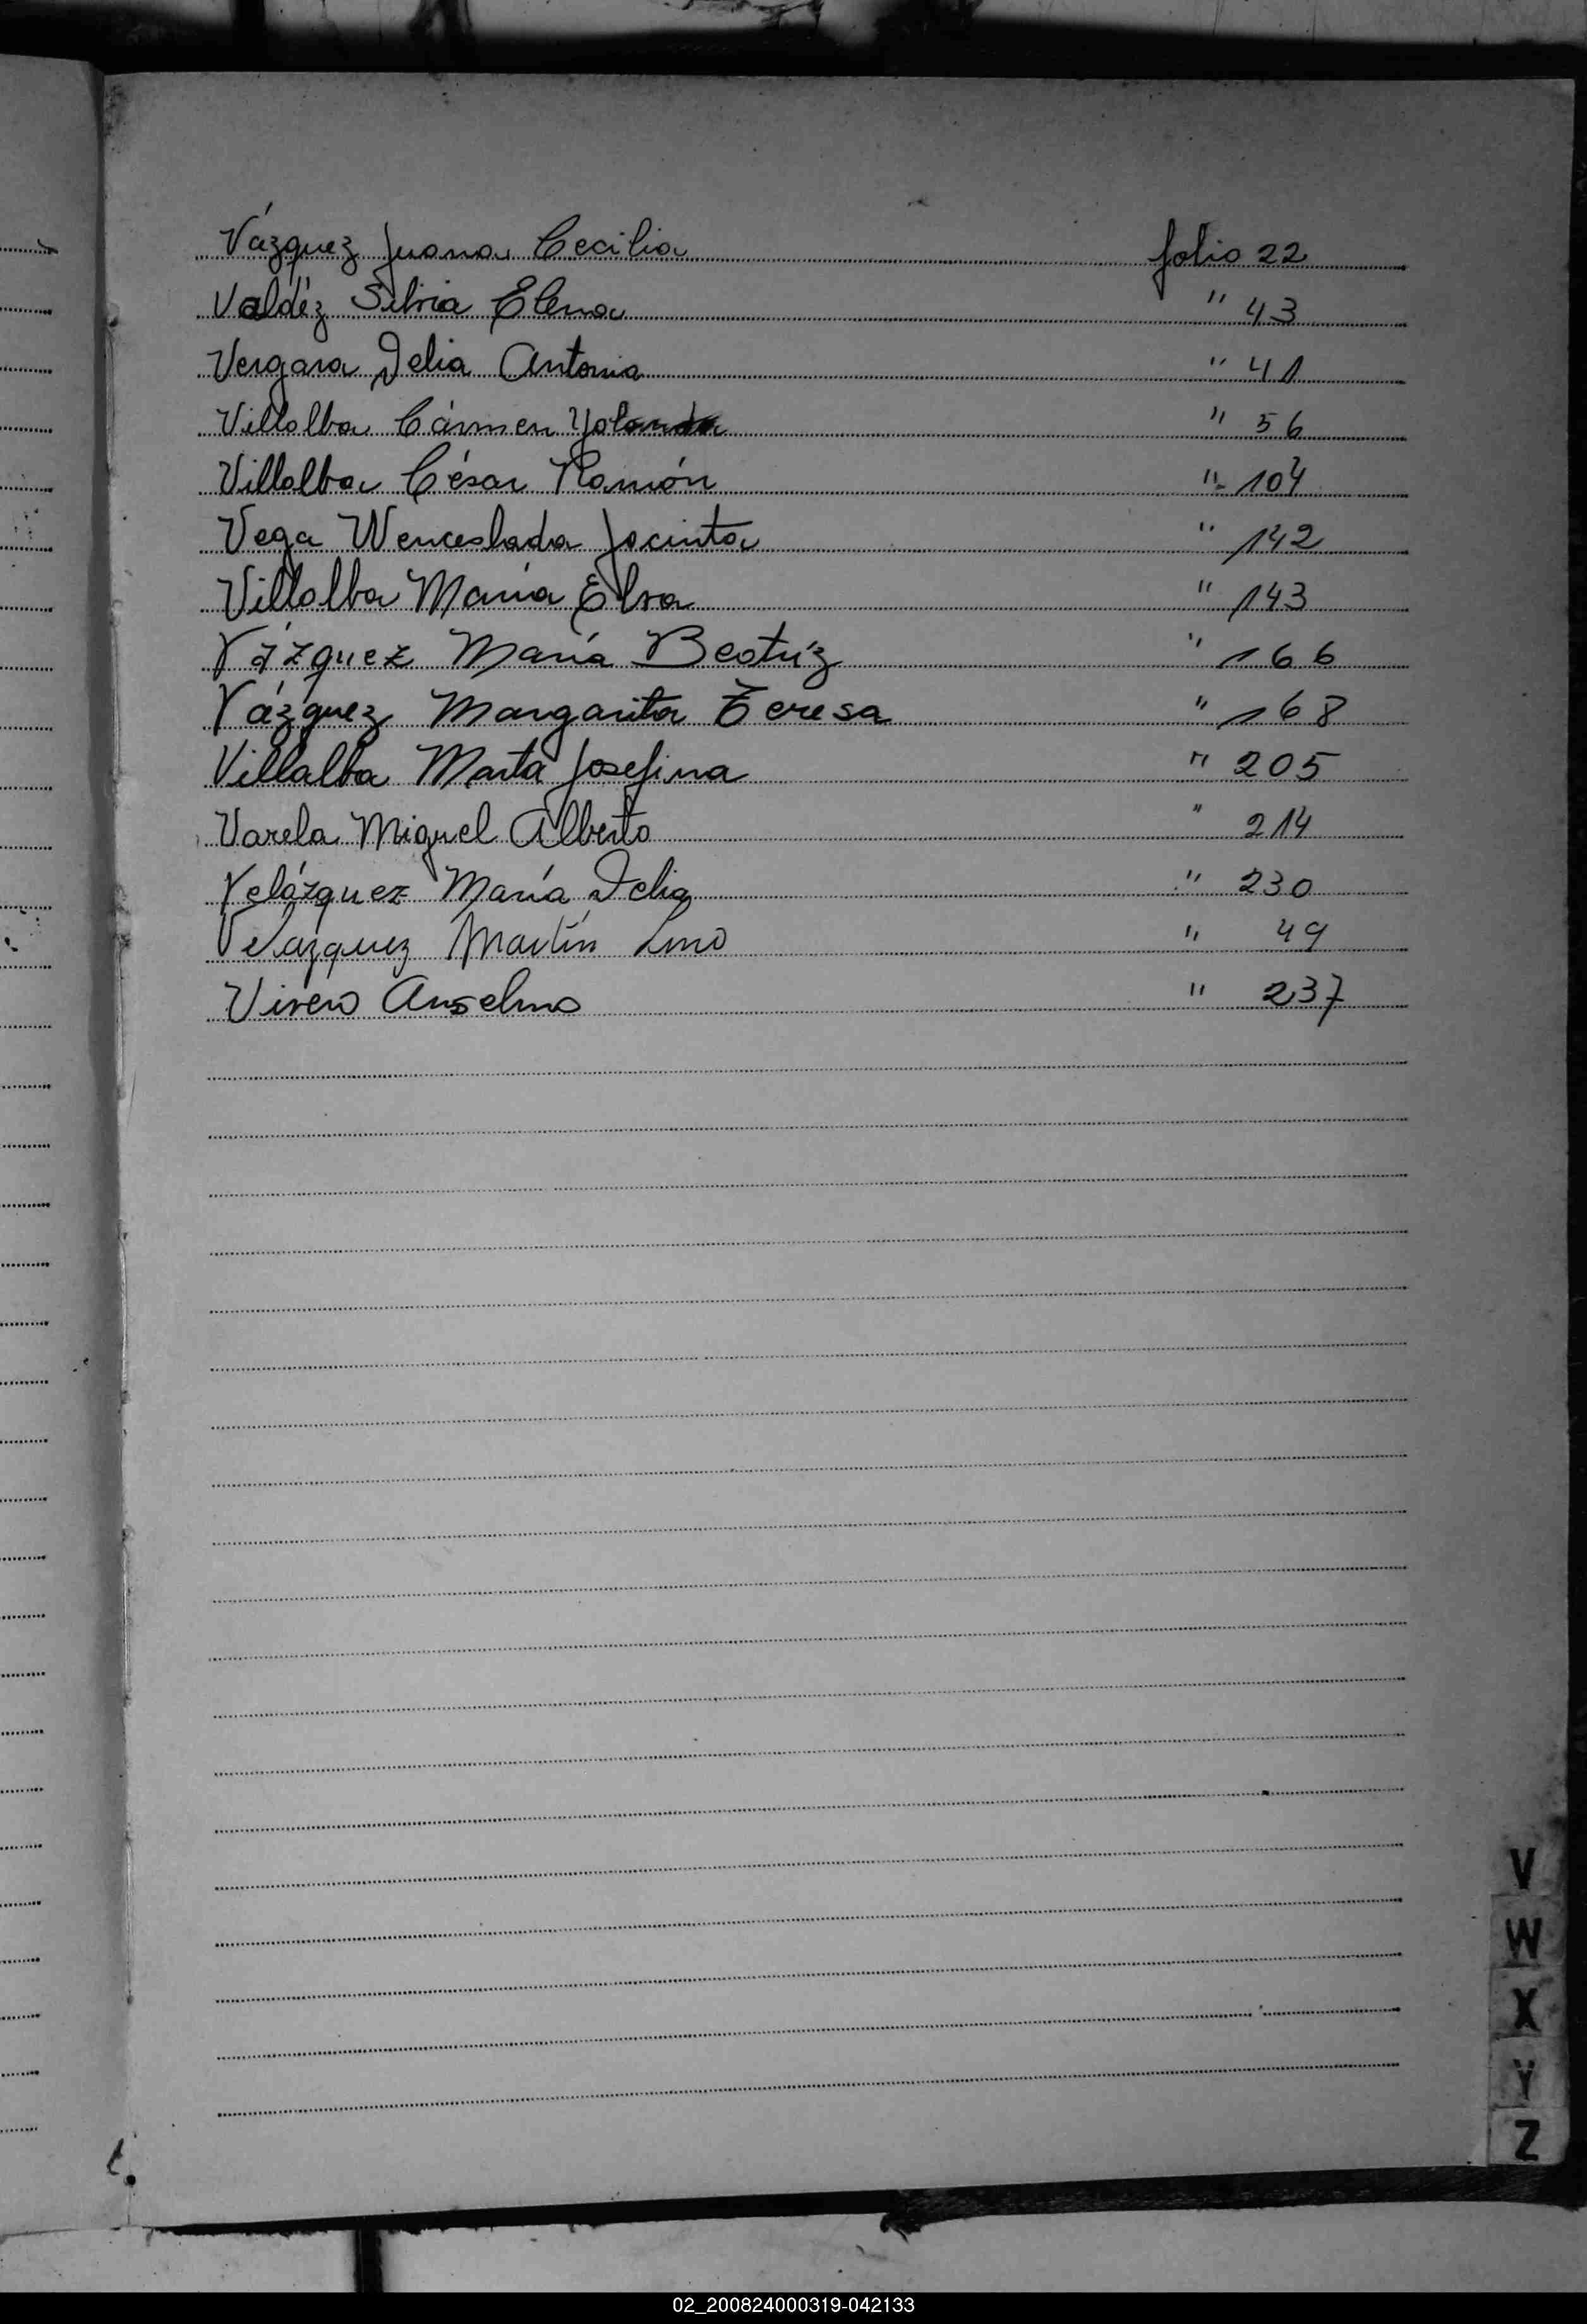 Vázquez Juana Cecilia folio 22
Valdéz Silvia Elena " 43
Vergara Delia Antonia " 41
Villalba Cármen Yolanda " 56
Villalba César Ramón " 104
Vega Wenceslada Jacinta " 142
Villalba María Elva " 143
Vázquez María Beatríz " 166
Vázquez Margarita Teresa " 168
Villalba Marta Josefina " 205
Varela Miguel Alberto " 214
Velázquez María Delia " 230
Velazquez Martín Lino " 49
Vivero Anselmo " 237
V
W
X
Y
Z
02_200824000319-042133